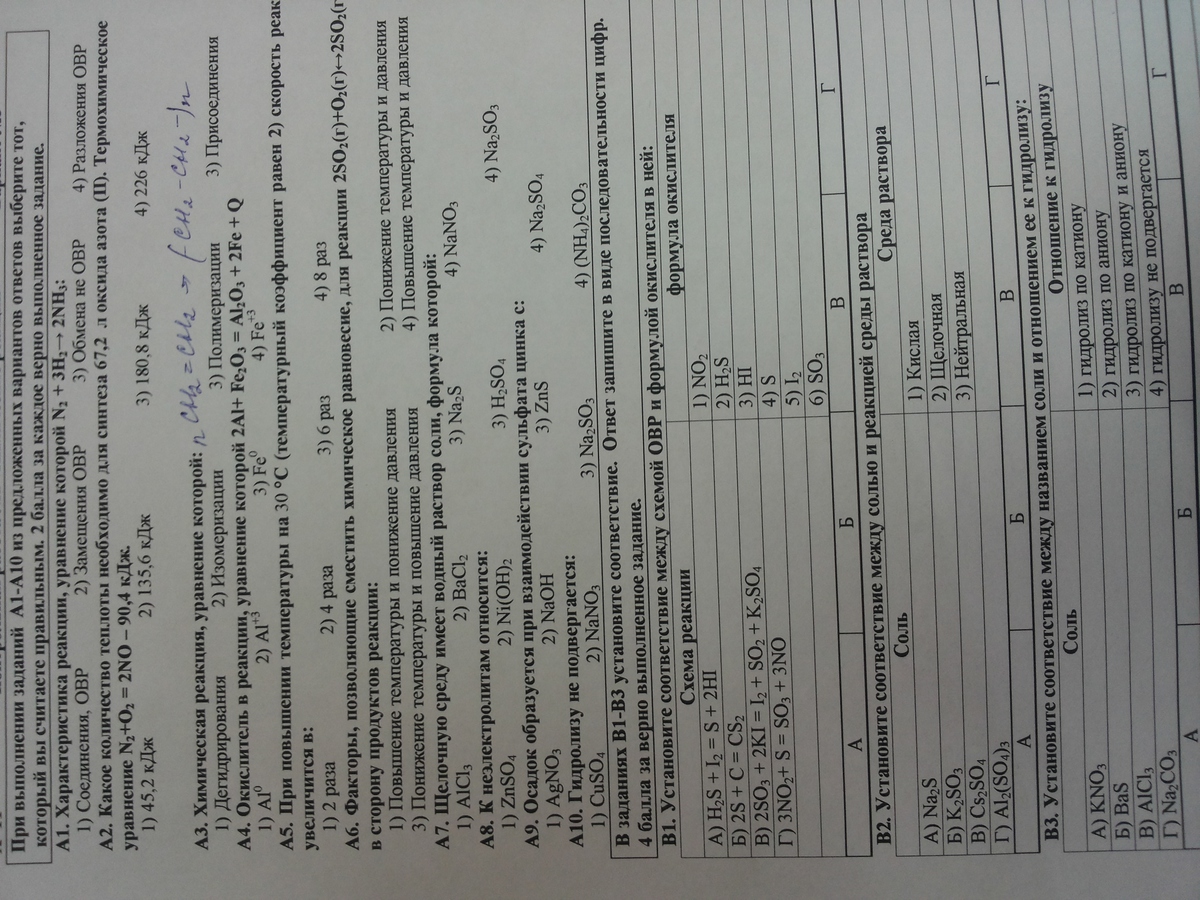 При выполнении заданий А1-А10 из предложенных вариантов ответов выберите тот,
который вы считаете правильным. 2 балла за каждое верно выполненное задание.
А1. Характеристика реакции, уравнение которой N₂ + 3H₂→ 2NH₃:
1) Соединения, ОВР 2) Замещения ОВР 3) Обмена не ОВР 4) Разложения ОВР
А2. Какое количество теплоты необходимо для синтеза 67,2 л оксида азота (II). Термохимическое
уравнение N₂+O₂ = 2NO – 90,4 кДж.
1) 45,2 кДж 2) 135,6 кДж 3) 180,8 кДж 4) 226 кДж
А3. Химическая реакция, уравнение которой: n CH₂ = CH₂ → (-CH₂ - CH₂ -)n
1) Дегидрирования 2) Изомеризации 3) Полимеризации 3) Присоединения
А4. Окислитель в реакции, уравнение которой 2Al+ Fe₂O₃ = Al₂O₃ + 2Fe + Q
1) Al⁰ 2) Al⁺³ 3) Fe⁰ 4) Fe⁺³
А5. При повышении температуры на 30 °С (температурный коэффициент равен 2) скорость реак
увеличится в:
1) 2 раза 2) 4 раза 3) 6 раз 4) 8 раз
А6. Факторы, позволяющие сместить химическое равновесие, для реакции 2SO₂(г)+O₂(г)↔2SO₂(г
в сторону продуктов реакции:
1) Повышение температуры и понижение давления 2) Понижение температуры и давления
3) Понижение температуры и повышение давления 4) Повышение температуры и давления
А7. Щелочную среду имеет водный раствор соли, формула которой:
1) AlCl₃ 2) BaCl₂ 3) Na₂S 4) NaNO₃
А8. К неэлектролитам относится:
1) ZnSO₄ 2) Ni(OH)₂ 3) H₂SO₄ 4) Na₂SO₃
А9. Осадок образуется при взаимодействии сульфата цинка с:
1) AgNO₃ 2) NaOH 3) ZnS 4) Na₂SO₄
А10. Гидролизу не подвергается:
1) CuSO₄ 2) NaNO₃ 3) Na₂SO₃ 4) (NH₄)₂CO₃
В заданиях В1-В3 установите соответствие. Ответ запишите в виде последовательности цифр.
4 балла за верно выполненное задание.
В1. Установите соответствие между схемой ОВР и формулой окислителя в ней:
Схема реакции формула окислителя
А) H₂S + I₂ = S + 2HI 1) NO₂
Б) 2S + C = CS₂ 2) H₂S
В) 2SO₃ + 2KI = I₂ + SO₂ + K₂SO₄ 3) HI
Г) 3NO₂+ S = SO₃ + 3NO 4) S
5) I₂
6) SO₃
А Б В Г
В2. Установите соответствие между солью и реакцией среды раствора
Соль Среда раствора
А) Na₂S 1) Кислая
Б) K₂SO₃ 2) Щелочная
В) Cs₂SO₄ 3) Нейтральная
Г) Al₂(SO₄)₃
А Б В Г
В3. Установите соответствие между названием соли и отношением ее к гидролизу:
Соль Отношение к гидролизу
А) KNO₃ 1) гидролиз по катиону
Б) BaS 2) гидролиз по аниону
В) AlCl₃ 3) гидролиз по катиону и аниону
Г) Na₂CO₃ 4) гидролизу не подвергается
А Б В Г